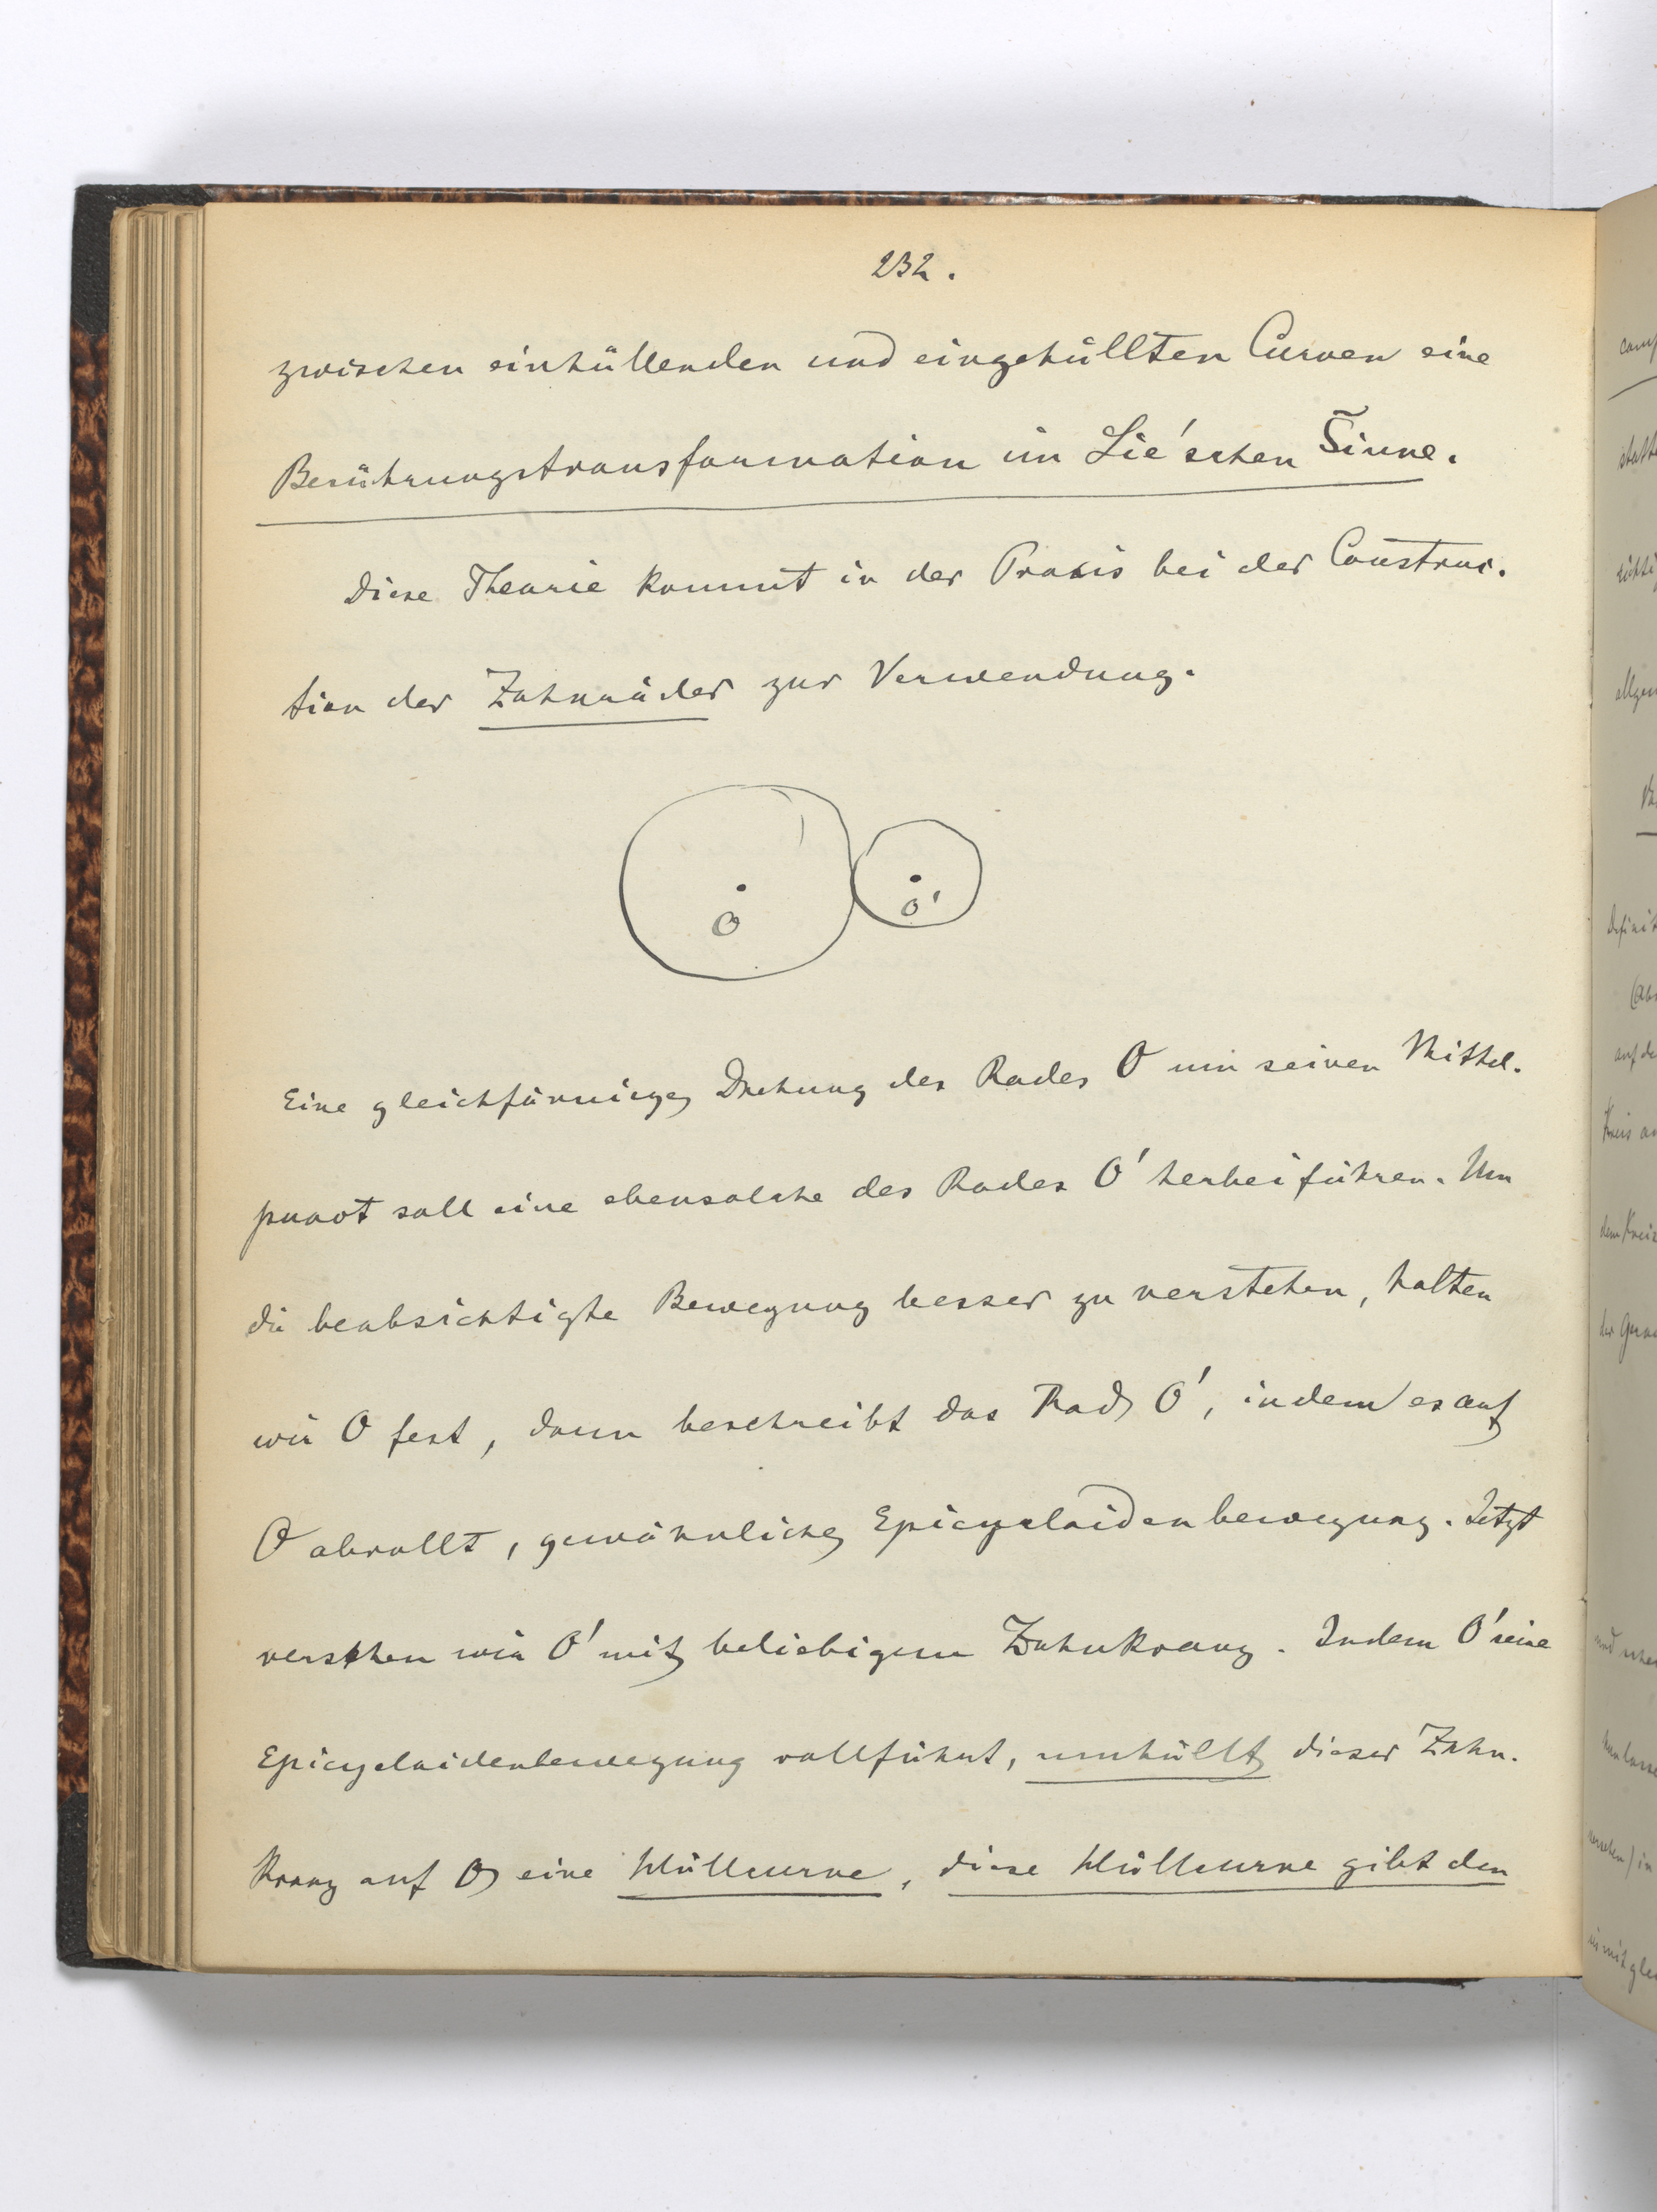 232.
zwischen einhüllenden und eingehüllten Curven eine
Berührungstransformation im Lie'schen Sinne.
Diese Theorie kommt in der Praxis bei der Construc-
tion der Zahnräder zur Verwendung.
O O'
Eine gleichförmige Drehung des Rades O um seinen Mittel-
punct soll eine ebensolche des Rades O' herbeiführen. Um
die beabsichtigte Bewegung besser zu verstehen, halten
wir O fest, dann beschreibt das Rad O', indem es auf
O abrollt, gewöhnliche Epicycloidenbewegung. Jetzt
versehen wir O' mit beliebigem Zahnkranz. Indem O' seine
Epicycloidenbewegung vollführt, umhüllt dieser Zahn-
kranz auf O eine Hüllcurve, diese Hüllcurve gibt den